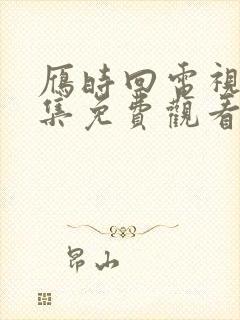 雁時回電視
集免費觀看
昂山